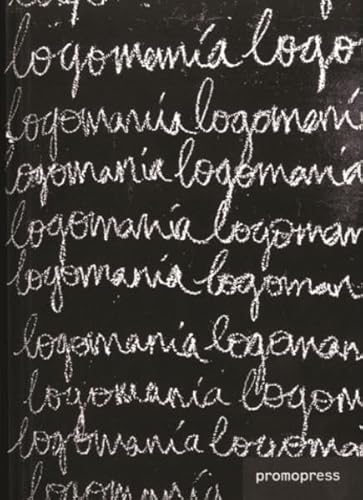 logomanía logo
logomanía logomaní
logomanía logomanía
logomanía logoman
logomanía logoman
logomanía logoman
logomanía logom
logomanía logoma
logomanía
promopress